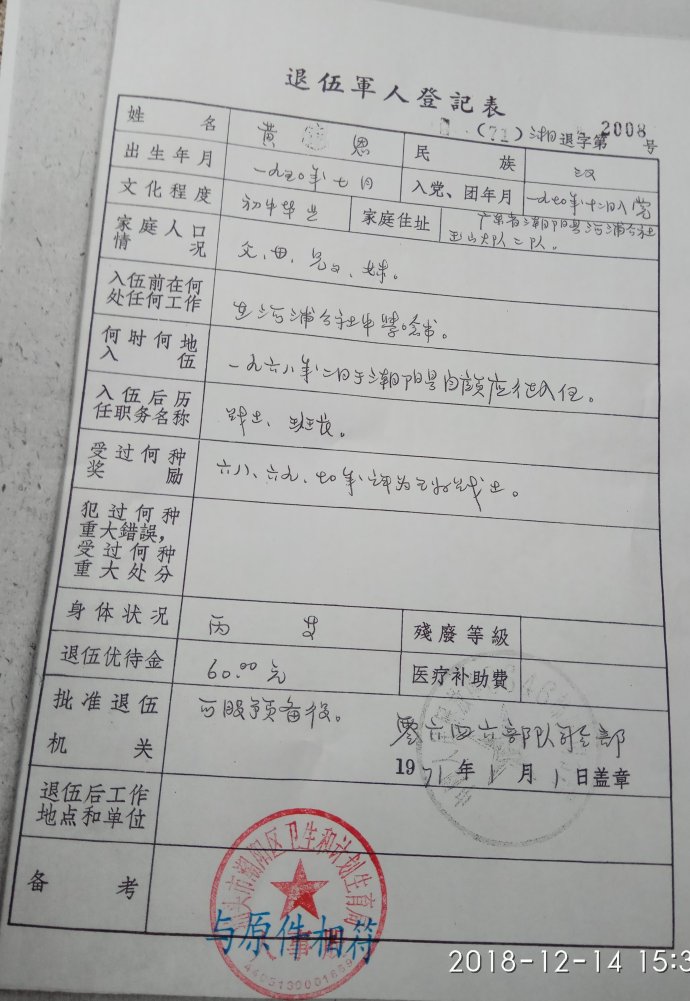 退伍軍人登記表
(71) 湘 退字第2008号
姓 名 黄 恩 民 族 汉
出生年月 一九五〇年七月 入党、团年月 一九七〇年十二月入党
文化程度 初中毕业 家庭住址 广东省潮阳县河浦公社
玉山大队二队。
家庭人口
情 况
父、母、兄、妹。
入伍前在何
处任何工作
在河浦公社中学念书。
何时何地
入 伍
一九六八年二月于潮阳县自愿应征入伍。
入伍后历
任职务名称
战士、班长。
受过何种
奖 励
六八、六九、七〇年评为五好战士。
犯过何种
重大錯誤,
受过何种
重大处分
身体状况 丙 殘廢等級
退伍优待金 60.00元 医疗补助費
批准退伍
机 关
可服预备役。
零六四六部队司令部
1971年1月1日盖章
退伍后工作
地点和单位
备 考
汕头市潮阳区卫生和计划生育局
与原件相符
2018-12-14 15:3